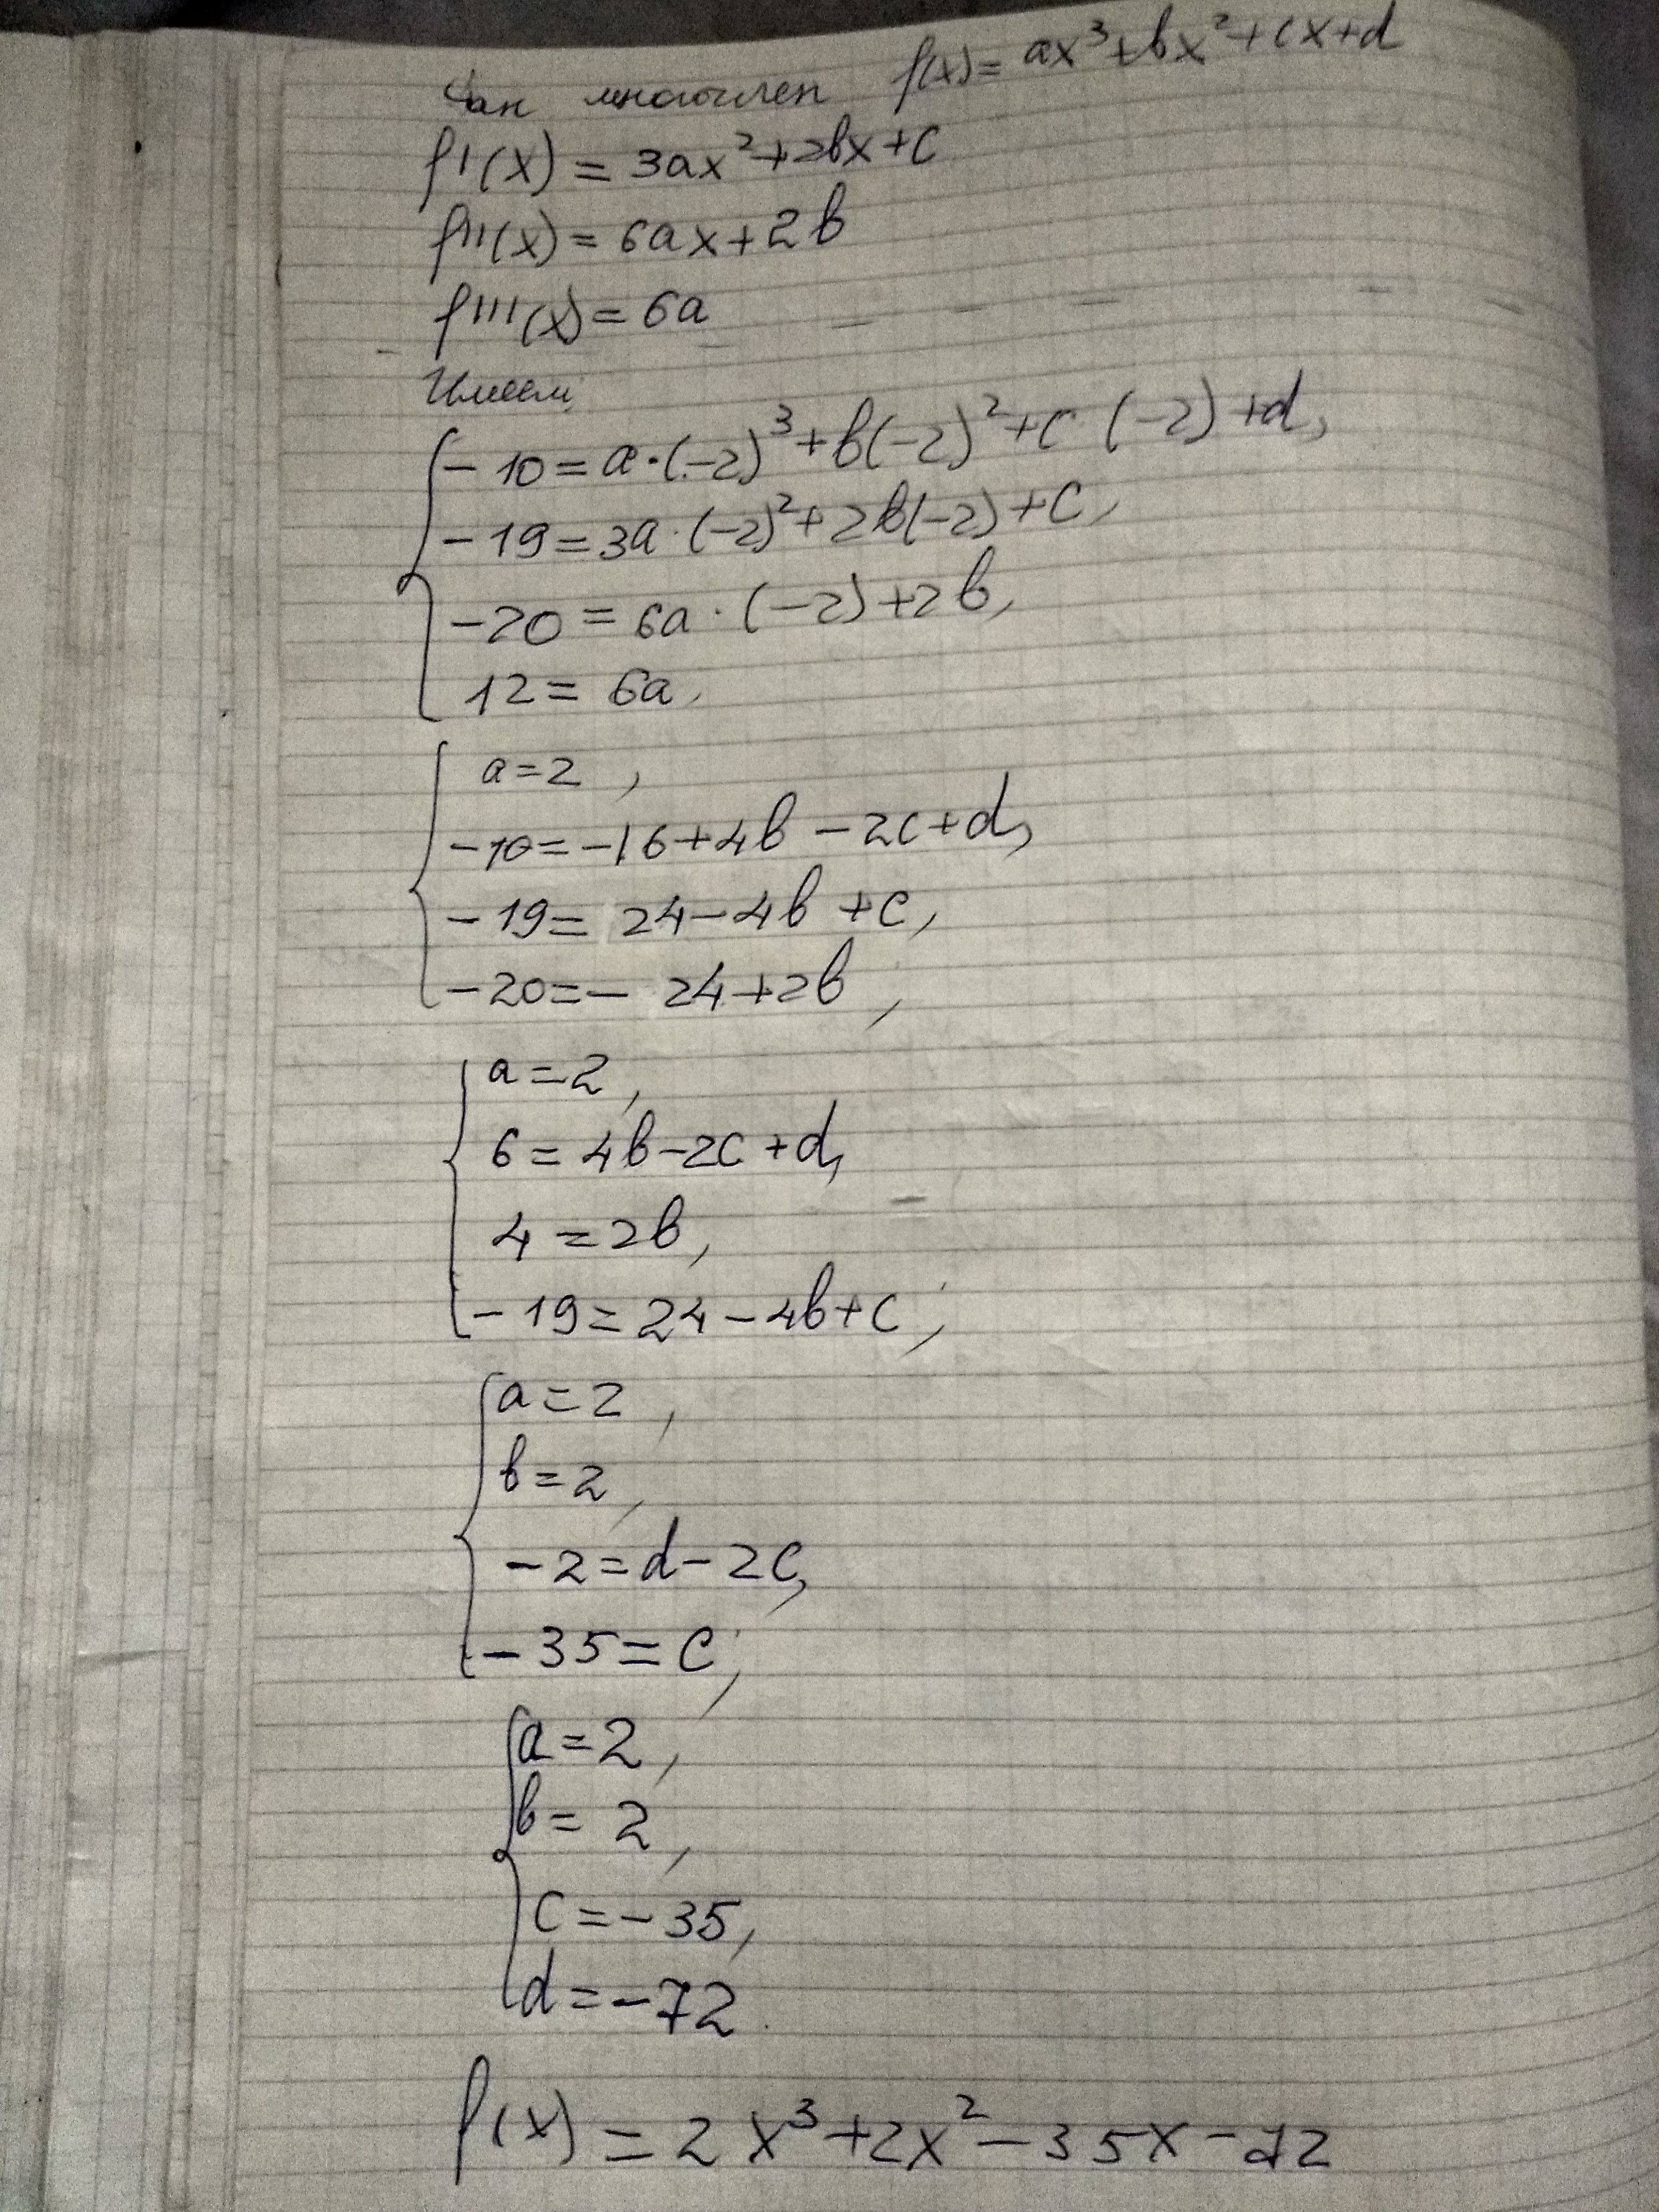 Дан многочлен f(x) = ax³+bx²+cx+d
f'(x) = 3ax²+2bx+c
f''(x) = 6ax+2b
f'''(x) = 6a
Имеем
-10=a·(-2)³+b(-2)²+c·(-2)+d,
-19=3a·(-2)²+2b(-2)+c,
-20=6a·(-2)+2b,
12=6a,
a=2,
-10=-16+4b-2c+d,
-19=24-4b+c,
-20=-24+2b;
a=2,
6=4b-2c+d,
4=2b,
-19=24-4b+c;
a=2,
b=2,
-2=d-2c,
-35=c;
a=2,
b=2,
c=-35,
d=-72.
f(x) = 2x³+2x²-35x-72